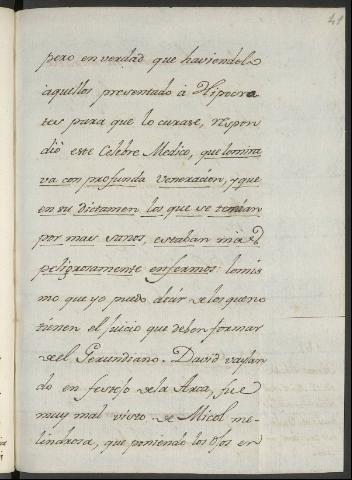 41
pero en verdad que haviendole
aquellos presentado à Hipocra
tes para que lo curase, respon
diò este Celebre Medico, que lo mira
va con profunda veneracion, y que
en su Dictamen los que se tenian
por mas sanos, estaban mas
peligrosamente enfermos: lo mis
mo que yo puedo decir de los que no
tienen el juicio que deben formar
del Gerundiano. David baylan
do en festejo de la Arca, fue
muy mal visto de Micol me-
lindrosa, que poniendo los ojos en